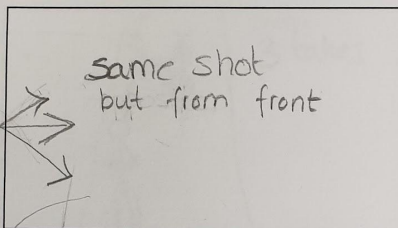 same shot
but from front